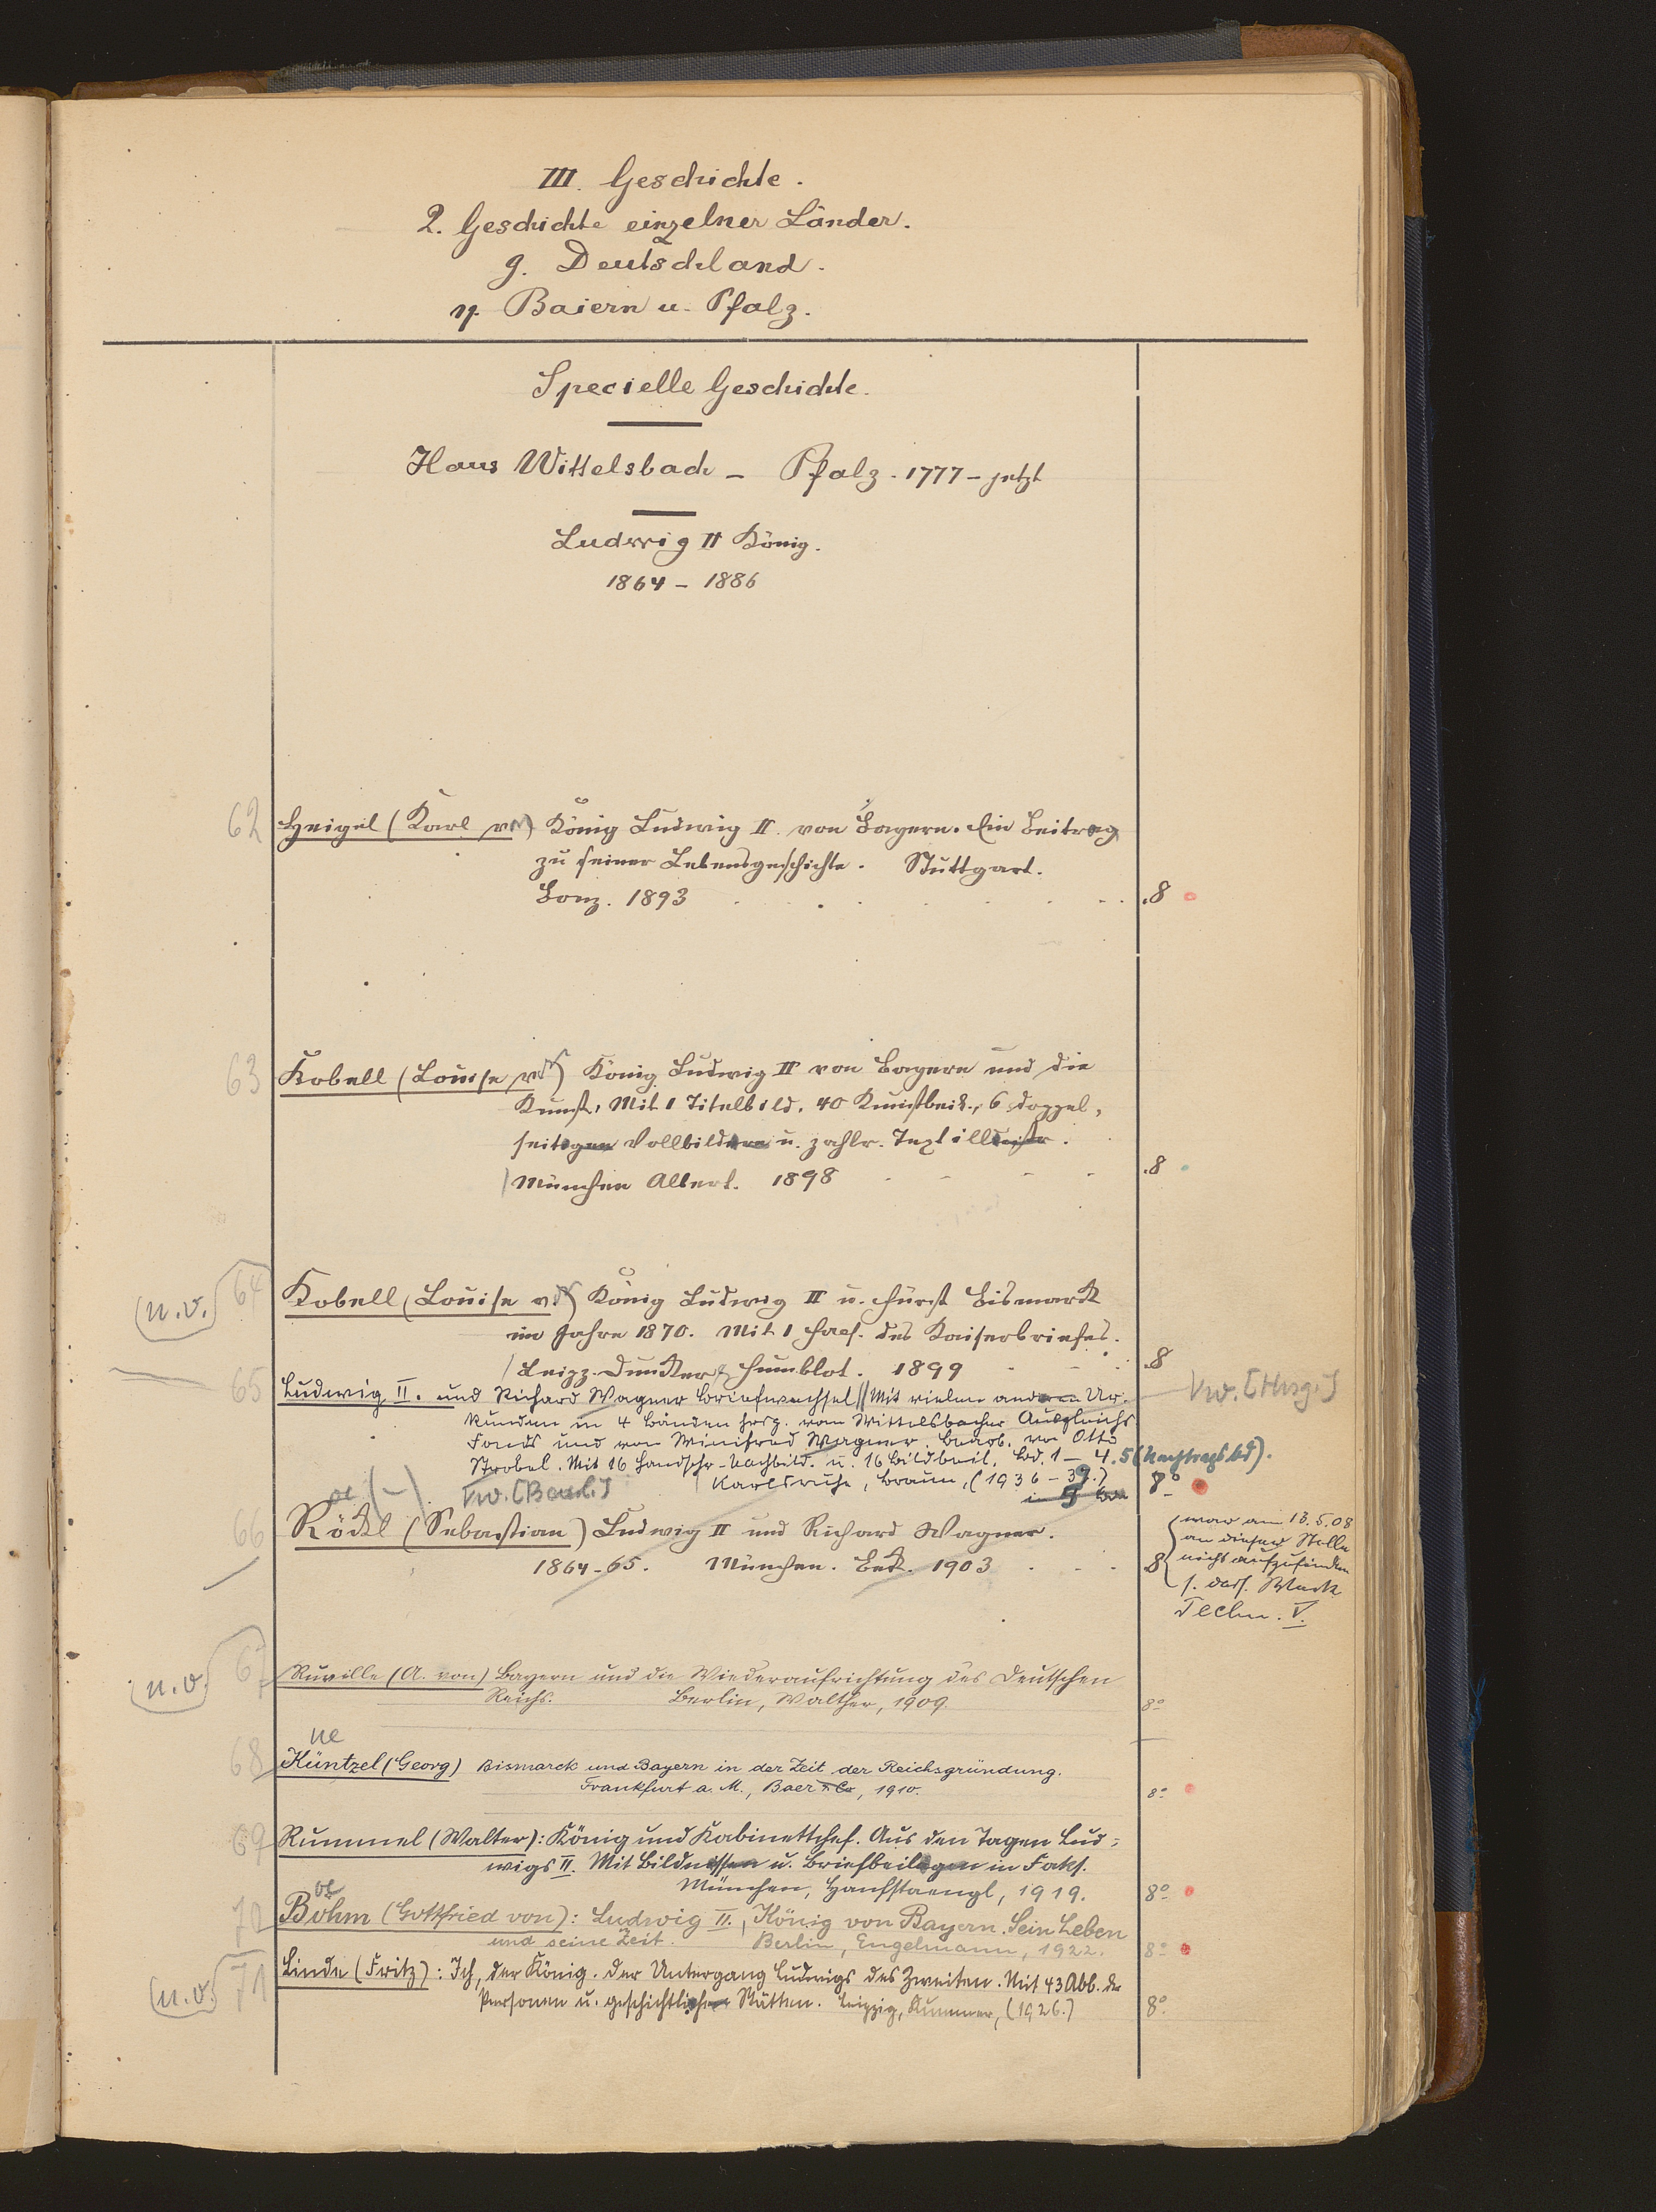 III. Geschichte.
2. Geschichte einzelner Länder.
g. Deutschland.
η. Baiern u. Pfalz.
Specielle Geschichte.
Haus Wittelsbach – Pfalz. 1777 – jetzt
Ludwig II König.
1864 – 1886
62 Heigel (Karl v.) König Ludwig II. von Bayern. Ein Beitrag
zu seiner Lebensgeschichte. Stuttgart.
Bonz. 1893 . 8
63 Kobell (Louise v.) König Ludwig II von Bayern und die
Kunst. Mit 1 Titelbild, 40 Kunstbeil., 6 doppel-
seitigen Vollbildern u. zahlr. Textillustr.
München Albert. 1898 . 8
(n.v.) 64 Kobell (Louise v.) König Ludwig II u. Fürst Bismarck
im Jahre 1870. Mit 1 Facs. des Kaiserbriefes.
Leipz. Duncker & Humblot. 1899 8
65 Ludwig II. und Richard Wagner Briefwechsel // Mit vielen anderen Ur- Vw. [Hrsg.]
kunden in 4 Bänden hrsg. vom Wittelsbacher Ausgleichs
Fonds und von Winifred Wagner. Bearb. von Otto
Strobel. Mit 16 Handschr.-Nachbild. u. 16 Bildbeil. Bd. 1 – 4. 5 (Nachtragsbd).
Vw. [Bearb.] Karlsruhe, Braun, (1936 – 39.) 8°
oe (–)
66 Röckl (Sebastian) Ludwig II und Richard Wagner.
1864-65. München. Beck. 1903 8
war am 13.5.08
an dieser Stelle
nicht aufzufinden
s. dass. Werk
Techn. V.
(n.v.) 67 Ruville (A. von) Bayern und die Wiederaufrichtung des Deutschen
Reichs. Berlin, Walther, 1909. 8°
ue
68 Küntzel (Georg) Bismarck und Bayern in der Zeit der Reichsgründung.
Frankfurt a. M., Baer & Co, 1910. 8°
69 Rummel (Walter): König und Kabinettchef. Aus den Tagen Lud-
wigs II. Mit Bildnissen u. Briefbeilagen in Faks.
München, Hanfstaengl, 1919. 8°
oe
70 Böhm (Gottfried von): Ludwig II., König von Bayern. Sein Leben
und seine Zeit. Berlin, Engelmann, 1922. 8°
(n.v.) 71 Linde (Fritz): Ich, der König. Der Untergang Ludwigs des Zweiten. Mit 43 Abb. der
Personen u. geschichtlichen Stätten. Leipzig, Kummer, (1926.) 8°